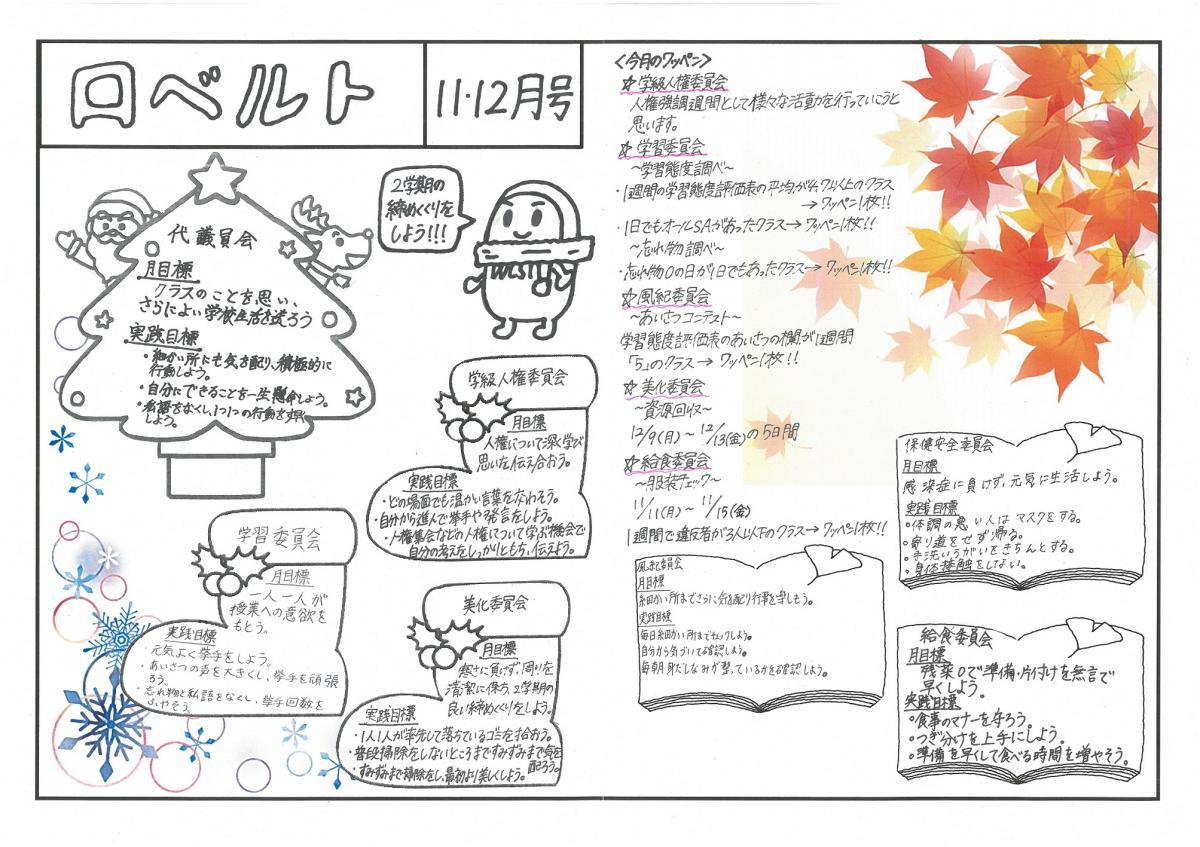 ロベルト
11・12月号
2学期の
締めくくりを
しよう!!!
代議員会
月目標
クラスのことを思い、
さらによい学校生活を送ろう
実践目標
・細かい所にも気を配り、積極的に
行動しよう。
・自分にできることを一生懸命しよう。
・私語をなくし、1つ1つの行動を早く
しよう。
学級人権委員会
月目標
人権について深く学び
思いを伝え合おう。
実践目標
・どの場面でも温かい言葉を交わそう。
・自分から進んで挙手や発言をしよう。
・人権集会などの人権について学ぶ機会で
自分の考えをしっかりともち、伝えよう。
学習委員会
月目標
一人一人が
授業への意欲を
もとう。
実践目標
・元気よく挙手をしよう。
・あいさつの声を大きくし、挙手を頑張
ろう。
・忘れ物と私語をなくし、挙手回数を
ふやそう。
美化委員会
月目標
寒さに負けず、周りを
清潔に保ち、2学期の
良い締めくくりをしよう。
実践目標
・1人1人が率先して落ちているゴミを拾おう。
・普段掃除をしないところまですみずみまで気を
配ろう。
・すみずみまで掃除をし、最初より美しくしよう。
<今月のワッペン>
☆学級人権委員会
人権強調週間として様々な活動を行っていこうと
思います。
☆学習委員会
~学習態度調べ~
・1週間の学習態度評価表の平均が4.7以上のクラス
→ワッペン1枚!!
・1日でもオール5Aがあったクラス→ワッペン1枚!!
~忘れ物調べ~
・忘れ物0の日が1日でもあったクラス→ワッペン1枚!!
☆風紀委員会
~あいさつコンテスト~
学習態度評価表のあいさつの欄が1週間
「5」のクラス→ワッペン1枚!!
☆美化委員会
~資源回収~
12/9(月)~12/13(金)の5日間
☆給食委員会
~服装チェック~
11/11(月)~11/15(金)
1週間で違反者が3人以下のクラス→ワッペン1枚!!
風紀委員会
月目標
細かい所までさらに気を配り行事を守もう。
実践目標
毎日細かい所までチェックしよう。
自分から気づいて確認しよう。
毎朝身だしなみが整っているかを確認しよう。
保健安全委員会
月目標
感染症に負けず、元気に生活しよう。
実践目標
・体調の悪い人はマスクをする。
・寄り道をせず帰る。
・手洗いうがいをきちんとする。
・身体接触をしない。
給食委員会
月目標
残菜0で準備・片付けを無言で
早くしよう。
実践目標
・食事のマナーを守ろう。
・つぎ分けを上手にしよう。
・準備を早くして食べる時間を増やそう。